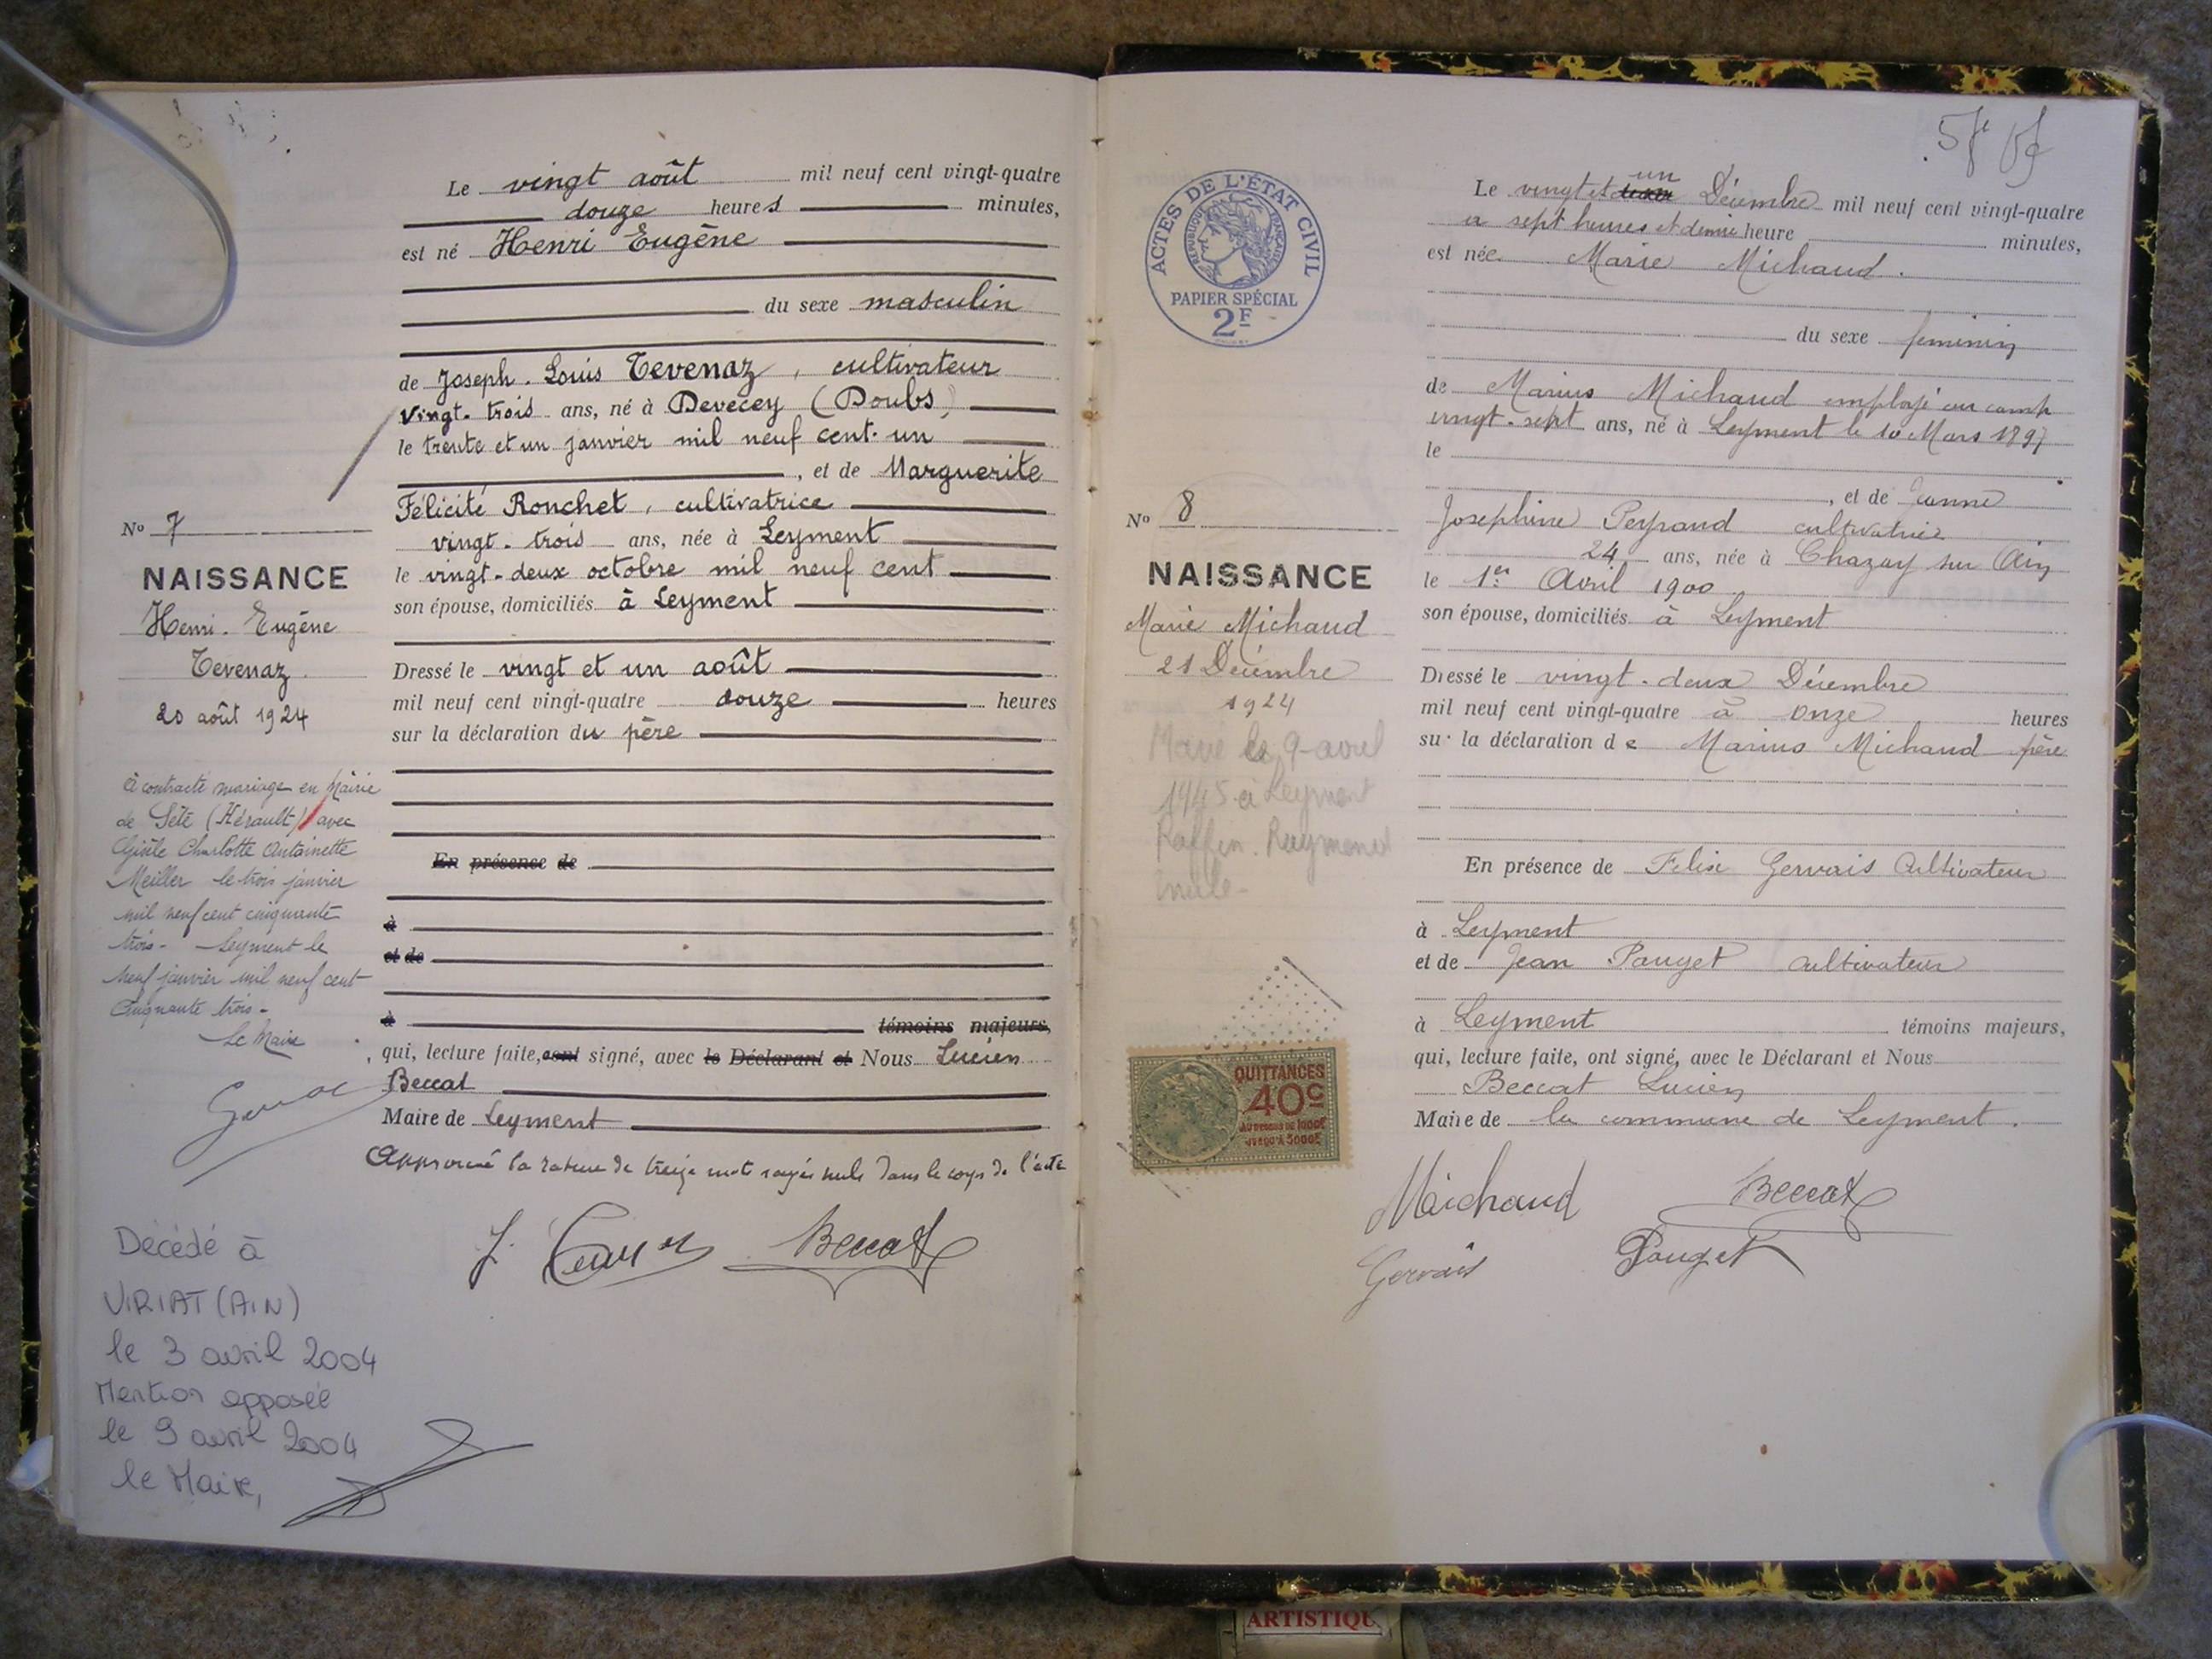 Le vingt août mil neuf cent vingt-quatre
douze heures minutes,
est né Henri Eugène
du sexe masculin
de Joseph. Louis Tevenaz, cultivateur
Vingt-trois ans, né à Devecey (Doubs)
le trente et un janvier mil neuf cent. un
, et de Marguerite
Félicité Ronchet, cultivatrice
vingt-trois ans, née à Leyment
le vingt-deux octobre mil neuf cent
son épouse, domiciliés à Leyment
Dressé le vingt et un août
mil neuf cent vingt-quatre douze heures
sur la déclaration du père
En présence de
à
et de
à témoins majeurs,
qui, lecture faite, ont signé, avec le Déclarant et Nous Lucien
Beccat
Maire de Leyment
Approuvé la rature de treize mots rayés nuls dans le corps de l'acte
J. Beccat
No 7
NAISSANCE
Henri. Eugène
Tevenaz
20 août 1924
à contracté mariage en Mairie
de Sète (Hérault) avec
Gisèle Charlotte Antoinette
Meiller le trois janvier
mil neuf cent cinquante
trois- Leyment le
neuf janvier mil neuf cent
Cinquante trois-
Le Maire
Décédé à
VIRIAT (AIN)
le 3 avril 2004
Mention apposée
le 9 avril 2004
le Maire,
ACTES DE L'ÉTAT CIVIL
RÉPUBLIQUE FRANÇAISE
PAPIER SPÉCIAL
2F
Le vingt et deux un Décembre mil neuf cent vingt-quatre
à sept heures et demie heure minutes,
est née Marie Michaud.
du sexe feminin
de Marius Michaud employé au camp
vingt-sept ans, né à Leyment le 10 Mars 1897
le
, et de Jeanne
Josephine Peyraud cultivatrice
24 ans, née à Chazay sur Ain
le 1er Avril 1900
son épouse, domiciliés à Leyment
Dressé le vingt-deux Décembre
mil neuf cent vingt-quatre à onze heures
sur la déclaration de Marius Michaud père
En présence de Felix Gervais Cultivateur
à Leyment
et de Jean Pauget cultivateur
à Leyment témoins majeurs,
qui, lecture faite, ont signé, avec le Déclarant et Nous
Beccat Lucien
Maire de la commune de Leyment.
Michaud Beccat
Gervais Pauget
No 8
NAISSANCE
Marie Michaud
21 Décembre
1924
Marié le 9 avril
1945 à Leyment
Raffin. Raymond
QUITTANCES
40c
AU DESSUS DE 1000F
JUSQU'À 3000F
ARTISTIQU